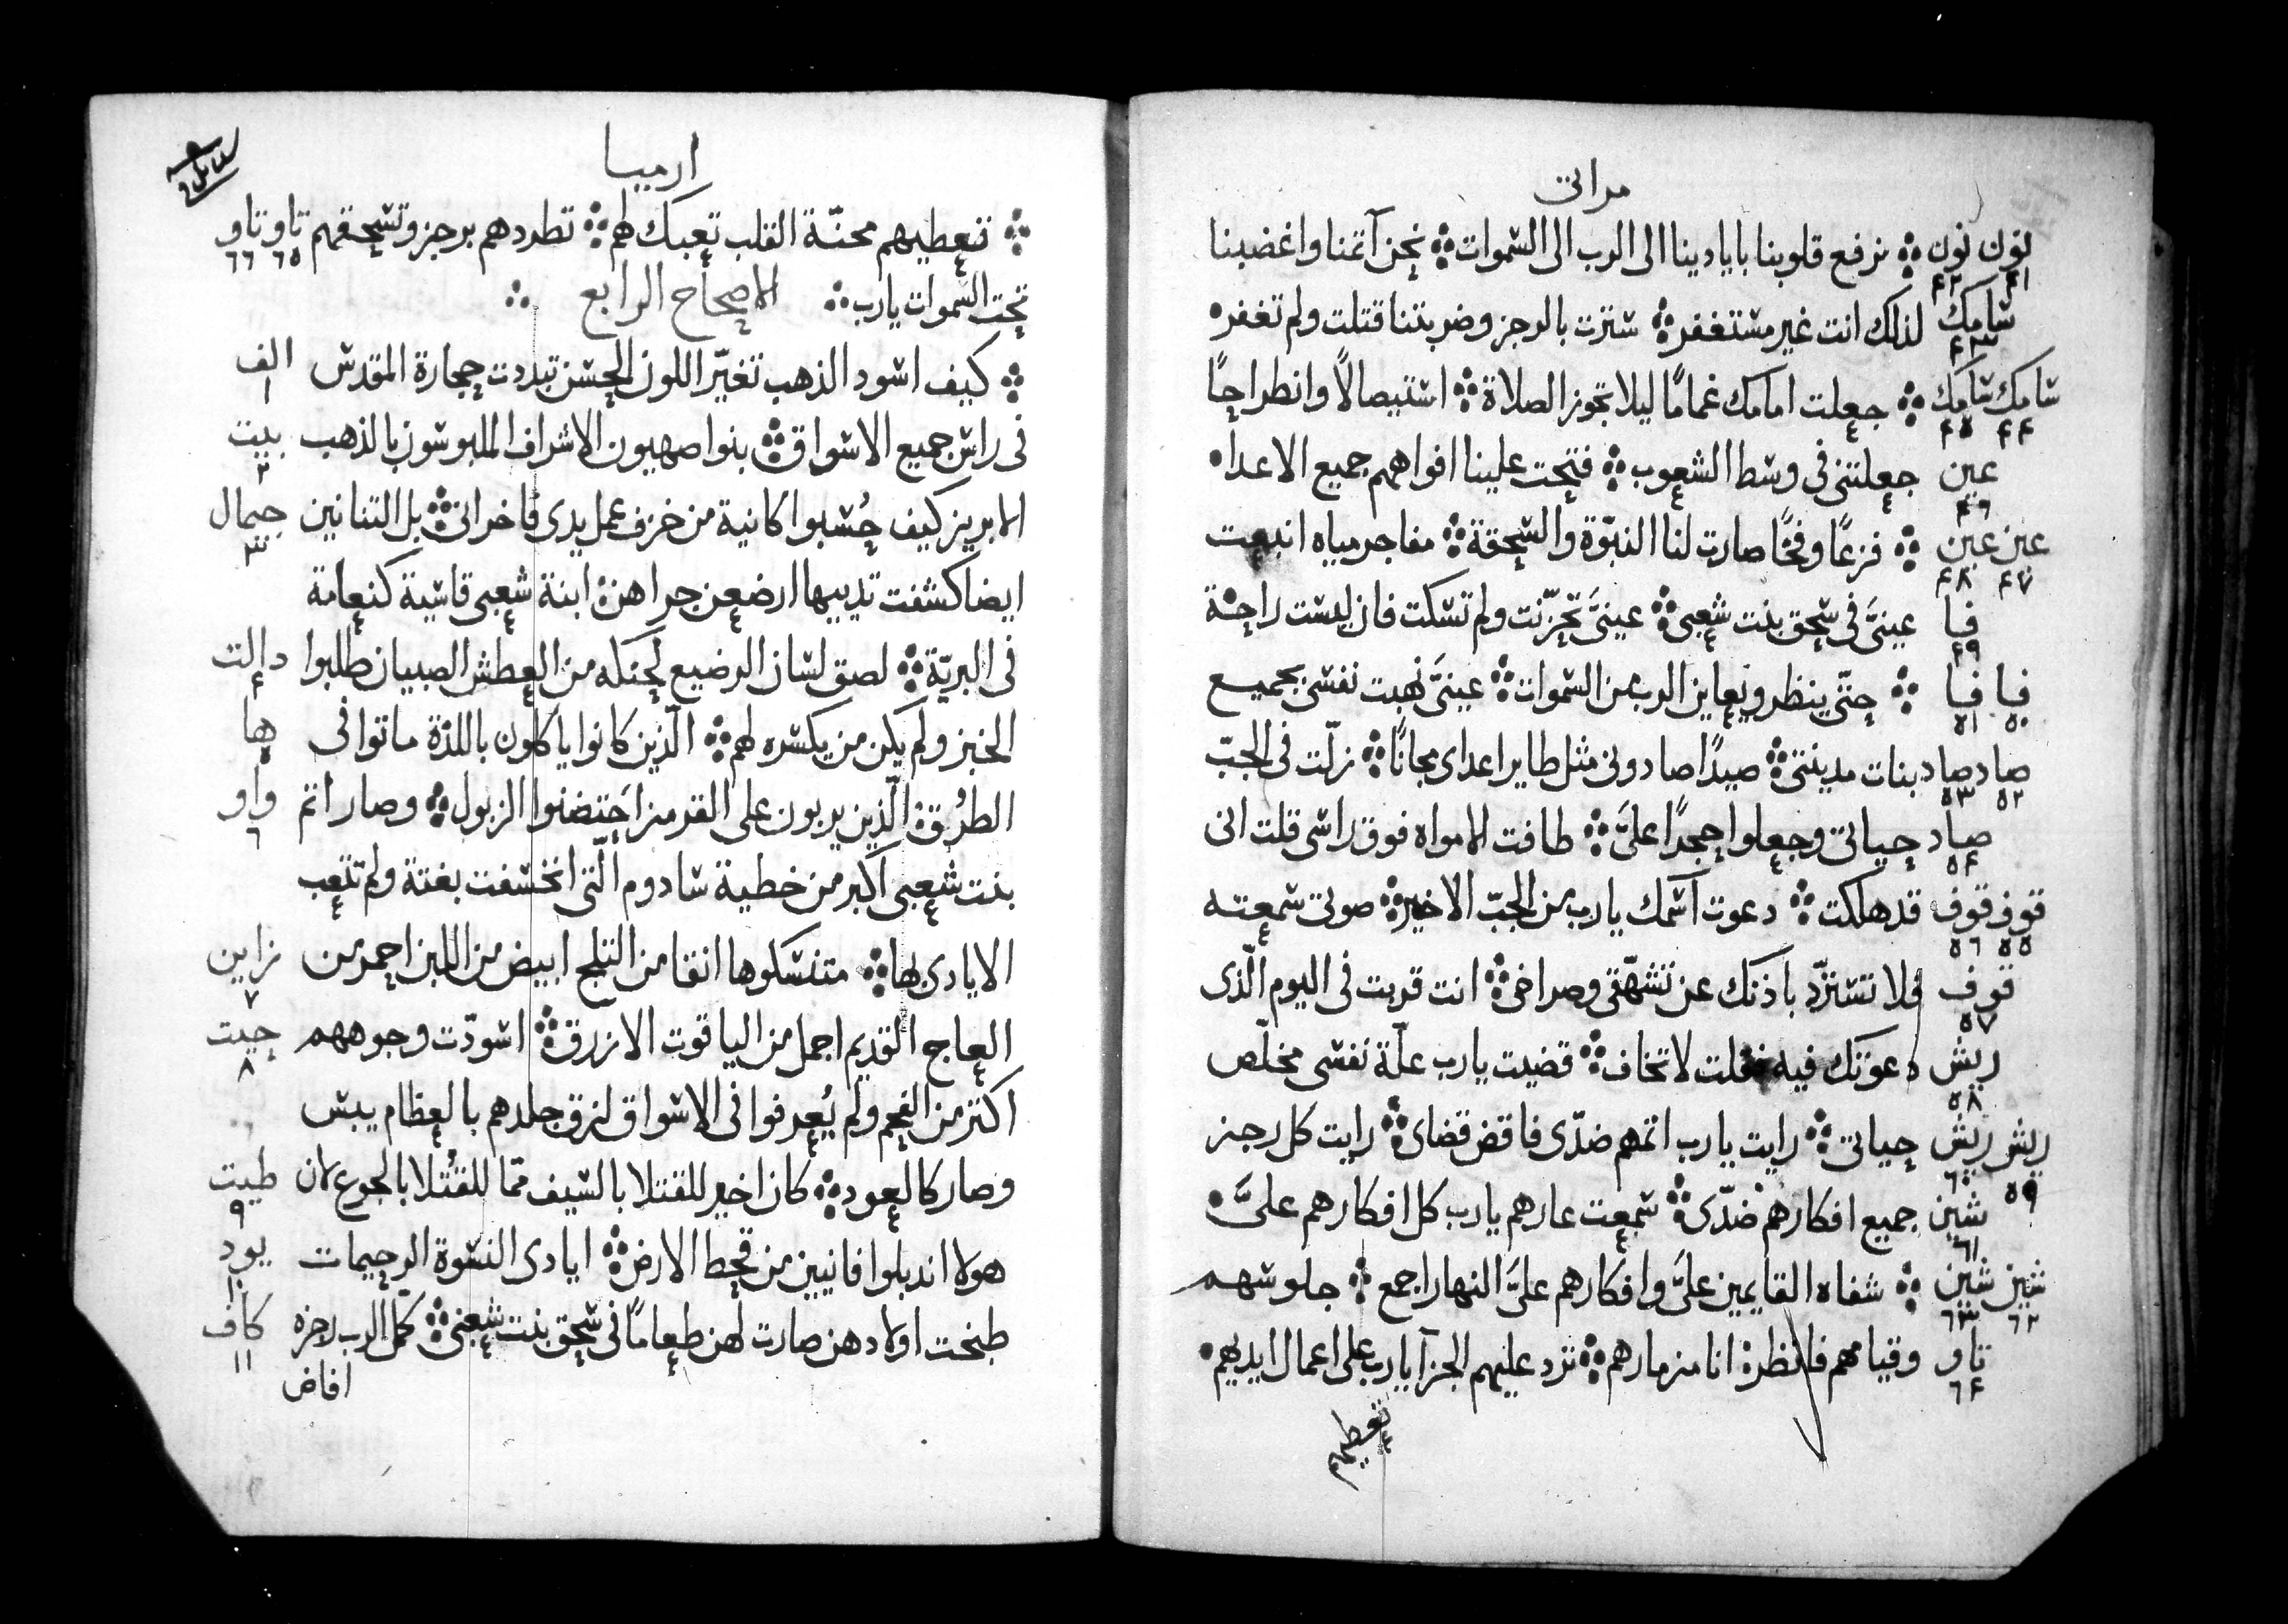 مراتى
نون نون ۞ نرفع قلوبنا بايادينا الى الرب الى السموات ۞ نحن آثمنا واغضبنا
٤١ ٤٢
سامك لذلك انت غير مستغفر ۞ سترت بالرجز وضربتنا قتلت ولم تغفر •
٤٣
سامك سامك ۞ جعلت امامك غمامًا ليلا تجوز الصلاة ۞ استيصالاً وانطراحًا
٤٤ ٤٥
عين جعلتنى فى وسط الشعوب ۞ فتحت علينا افواههم جميع الاعدا •
٤٦
عين عين ۞ فزعًا وفخًا صارت لنا النبوّة والسحقة ۞ مفاجر مياه انبعت
٤٧ ٤٨
فيا عينىَّ فى سحق بنت شعبى ۞ عينىَّ تحزّنت ولم تسكت فان ليست راحة
٤٩
فيا فيا ۞ حتّى ينظر ويعاين الرب من السموات ۞ عينىَّ نهبت نفسى بجميع
٥٠ ٥١
صاد صاد بنات مدينتى ۞ صيدًا صادونى مثل طاير اعداى مجانًا ۞ زلّت فى الجبّ
٥٢ ٥٣
صاد حياتى وجعلوا حجرًا علىَّ ۞ طافت الامواه فوق راسى قلت انى
٥٤
قوف قوف قد هلكت ۞ دعوت اسمك يارب من الجبّ الاخير ۞ صوتى سمعته
٥٥ ٥٦
قوف فلا تسترّد باذنك عن تشهّقى وصراخى ۞ انت قربت فى اليوم الّذى
٥٧
ريش دعوتك فيه فقلت لا تخاف ۞ قضيت يارب علّة نفسى مخلّص
٥٨
ريش ريش حياتى ۞ رايت يارب اثمهم ضدّى فاقض قضاى ۞ رايت كل رجز
٥٩ ٦٠
شين جميع افكارهم ضدّى ۞ سمعت عارهم يارب كل افكارهم علىَّ •
٦١
شين شين ۞ شفاه القايمين علىَّ وافكارهم علىَّ النهار اجمع ۞ جلوسهم
٦٢ ٦٣
تاو وقيامهم فانظره انا مزمارهم ۞ ترد عليهم الجزآ يارب على اعمال ايديهم •
٦٤
تعطيهم
ارميا
۞ تعطيهم محنّة القلب تعبك لهم ۞ تطردهم برجز وتسحقهم تاو تاو
٦٥ ٦٦
تحت السموات يارب ۞ الاصحاح الرابع ۞
۞ كيف اسود الذهب تغيّر اللون الحسن تبددت حجارة المقدس الف
١
فى راس جميع الاسواق ۞ بنوا صهيون الاشراف الملبوسون بالذهب بيت
٢
الابريز كيف حُسبوا كانية من خزف عمل يدى فاخرانى ۞ بل التنانين جيمال
٣
ايضا كشفت تدييها ارضعن جراهن ابنة شعبى قاسية كنعامة
فى البريّة ۞ لصق لسان الرضيع لحنكه من العطش الصبيان طلبوا دالت
٤
الخبز ولم يكن من يكسره لهم ۞ الّذين كانوا ياكلون باللذة ماتوا فى ها
٥
الطُرق الّذين يربون على القرمز احتضنوا الزبول ۞ وصار اثم واو
٦
بنت شعبى اكبر من خطية سادوم الّتى انخسفت بغتة ولم تتعب
الايادى بها ۞ متنسكوها انقا من الثلج ابيض من اللبن احمر من زاين
٧
العاج القديم اجمل من الياقوت الازرق ۞ اسودّت وجوههم حيت
٨
اكثر من الفحم ولم يُعرفوا فى الاسواق لزق جلدهم بالعظام يبس
وصار كالعود ۞ كان اخير للقتلا بالسيف ممّا للقتُلا بالجوع لان طيت
٩
هولا اندبلوا فانيين من قحط الارض ۞ ايادى النسوة الرحيمات يود
١٠
طبخت اولادهن صارت لهن طعامًا فى سحق بنت شعبى ۞ كمّل الرب رجزه كاف
١١
افاض